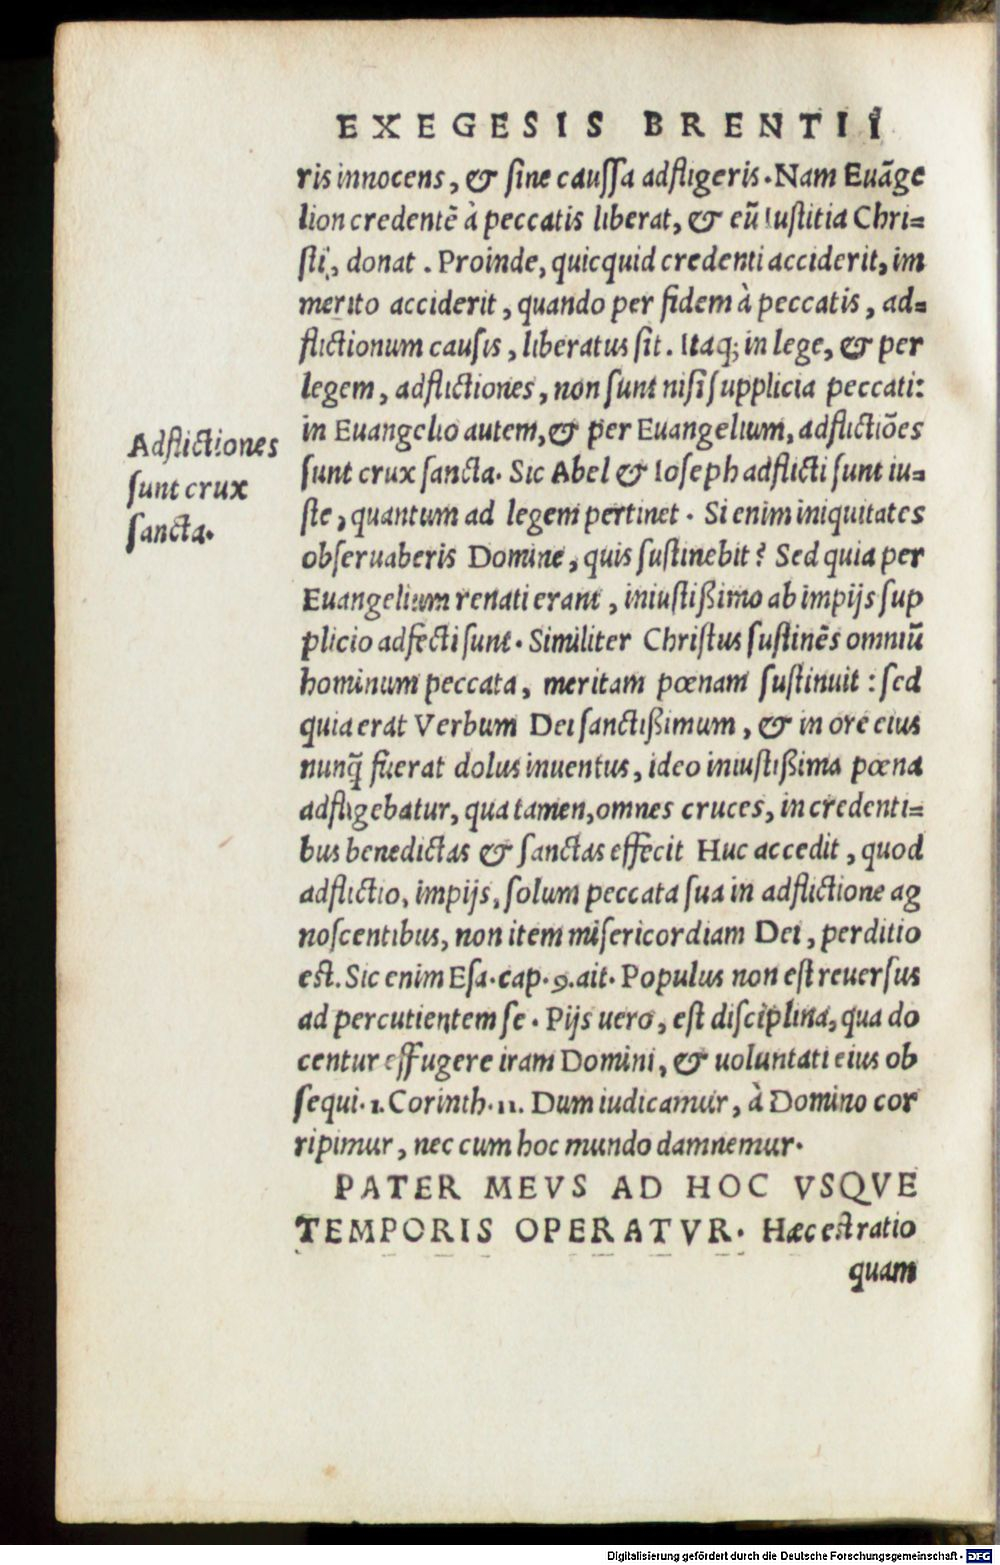 EXEGESIS BRENTII
ris innocens, & sine caussa adfligeris. Nam Euãge
lion credentẽ à peccatis liberat, & eũ Iustitia Chri=
sti, donat. Proinde, quicquid credenti acciderit, im
merito acciderit, quando per fidem à peccatis, ad=
flictionum causis, liberatus sit. Itaq; in lege, & per
legem, adflictiones, non sunt nisi supplicia peccati:
in Euangelio autem, & per Euangelium, adflictiões
sunt crux sancta. Sic Abel & Ioseph adflicti sunt iu=
ste, quantum ad legem pertinet. Si enim iniquitates
obseruaberis Domine, quis sustinebit? Sed quia per
Euangelium renati erant, iniustißimo ab impijs sup
plicio adfecti sunt. Similiter Christus sustinẽs omniũ
hominum peccata, meritam pœnam sustinuit: sed
quia erat Verbum Dei sanctißimum, & in ore eius
nunq̃ fuerat dolus inuentus, ideo iniustißima pœna
adfligebatur, qua tamen, omnes cruces, in credenti=
bus benedictas & sanctas effecit Huc accedit, quod
adflictio, impijs, solum peccata sua in adflictione ag
noscentibus, non item misericordiam Dei, perditio
est. Sic enim Esa. cap. 9. ait. Populus non est reuersus
ad percutientem se. Pijs uero, est disciplina, qua do
centur effugere iram Domini, & uoluntati eius ob
sequi. 1. Corinth. 11. Dum iudicamur, à Domino cor
ripimur, nec cum hoc mundo damnemur.
PATER MEVS AD HOC VSQVE
TEMPORIS OPERATVR. Hæc est ratio
quam
Adflictiones
sunt crux
sancta.
Digitalisierung gefördert durch die Deutsche Forschungsgemeinschaft - DFG